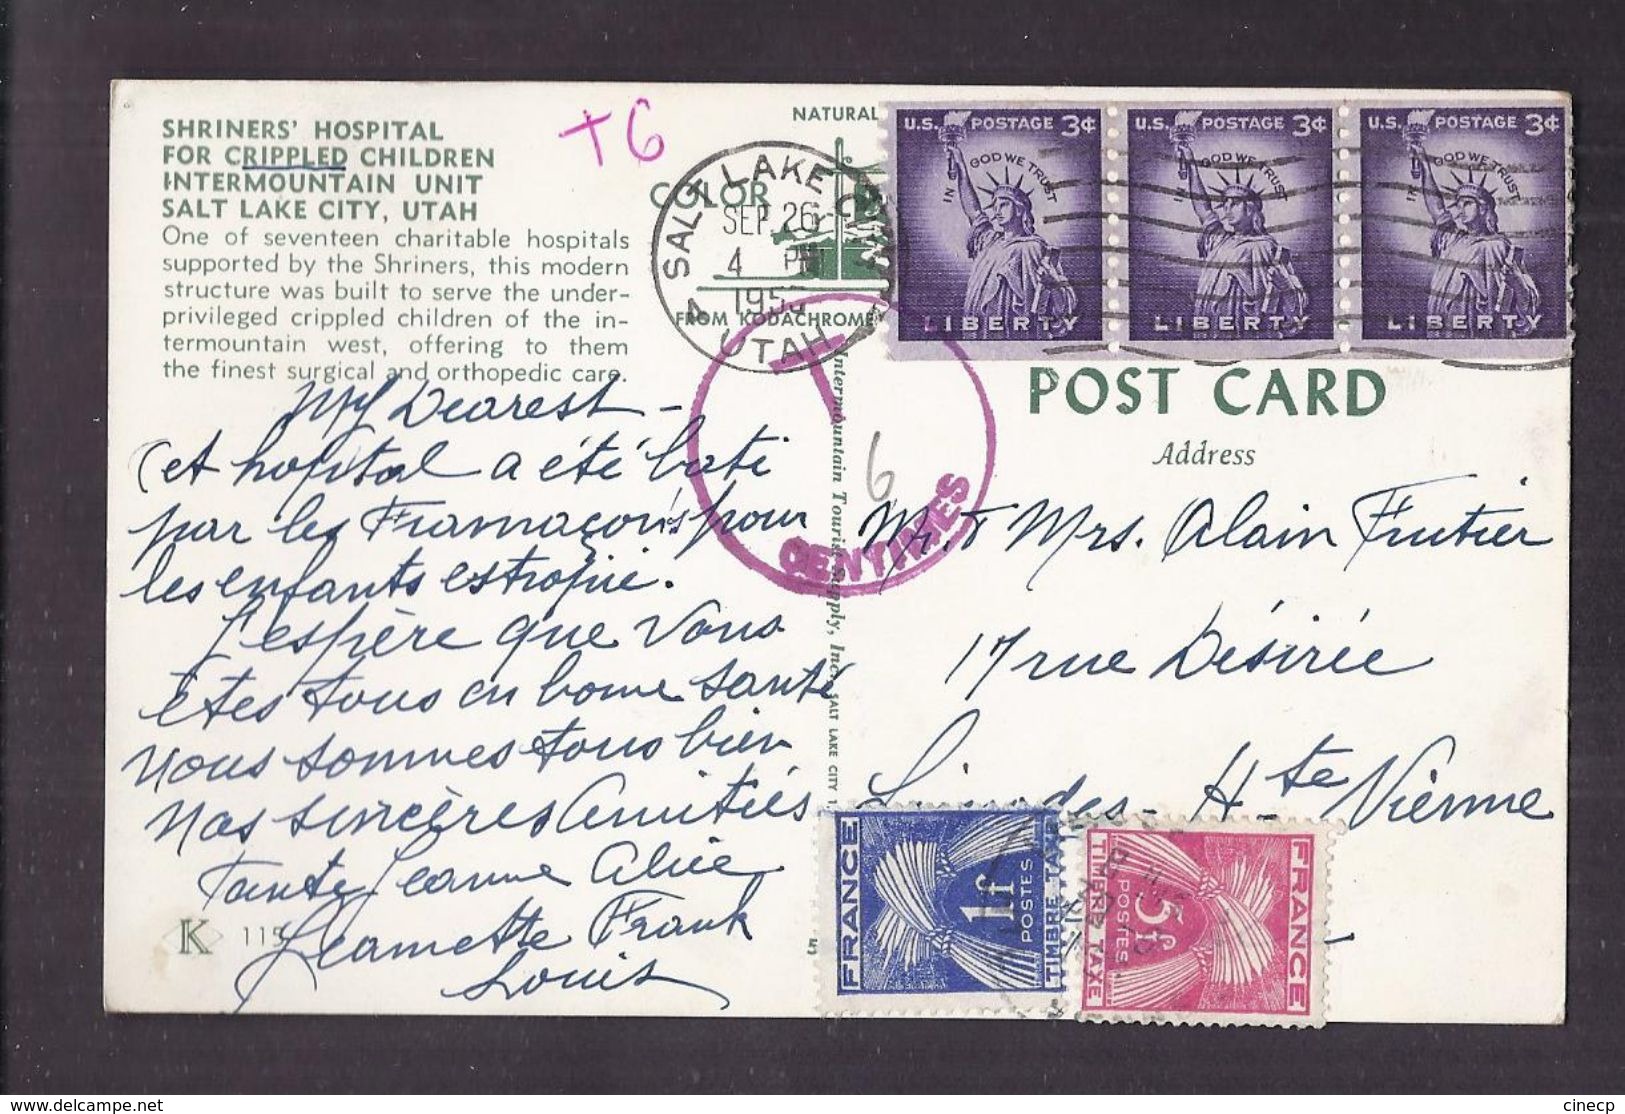 SHRINERS' HOSPITAL
FOR CRIPPLED CHILDREN
INTERMOUNTAIN UNIT
SALT LAKE CITY, UTAH
One of seventeen charitable hospitals
supported by the Shriners, this modern
structure was built to serve the under-
privileged crippled children of the in-
termountain west, offering to them
the finest surgical and orthopedic care.
+6
NATURAL
COLOR
FROM KODACHROME
SALT LAKE CITY
SEP 26
4 PM
UTAH
U.S. POSTAGE 3¢
IN GOD WE TRUST
LIBERTY
U.S. POSTAGE 3¢
IN GOD WE TRUST
LIBERTY
U.S. POSTAGE 3¢
IN GOD WE TRUST
LIBERTY
T
6
CENTIMES
My Dearest -
Cet hopital a été bati
par les Framaçons pour
les enfants estropié.
J'espère que vous
êtes tous en bonne santé
nous sommes tous bien
Nos sincères amitiés
Tante Jeanne Alice
Jeannette Frank
Louis
K 115
Intermountain Tourist Supply, Inc., SALT LAKE CITY 1,
5
POST CARD
Address
Mr. & Mrs. Alain Frutier
17 rue Désirée
Hte Vienne
FRANCE
1f
POSTES
TIMBRE TAXE
FRANCE
5f
POSTES
TIMBRE TAXE
delcampe.net
cinecp